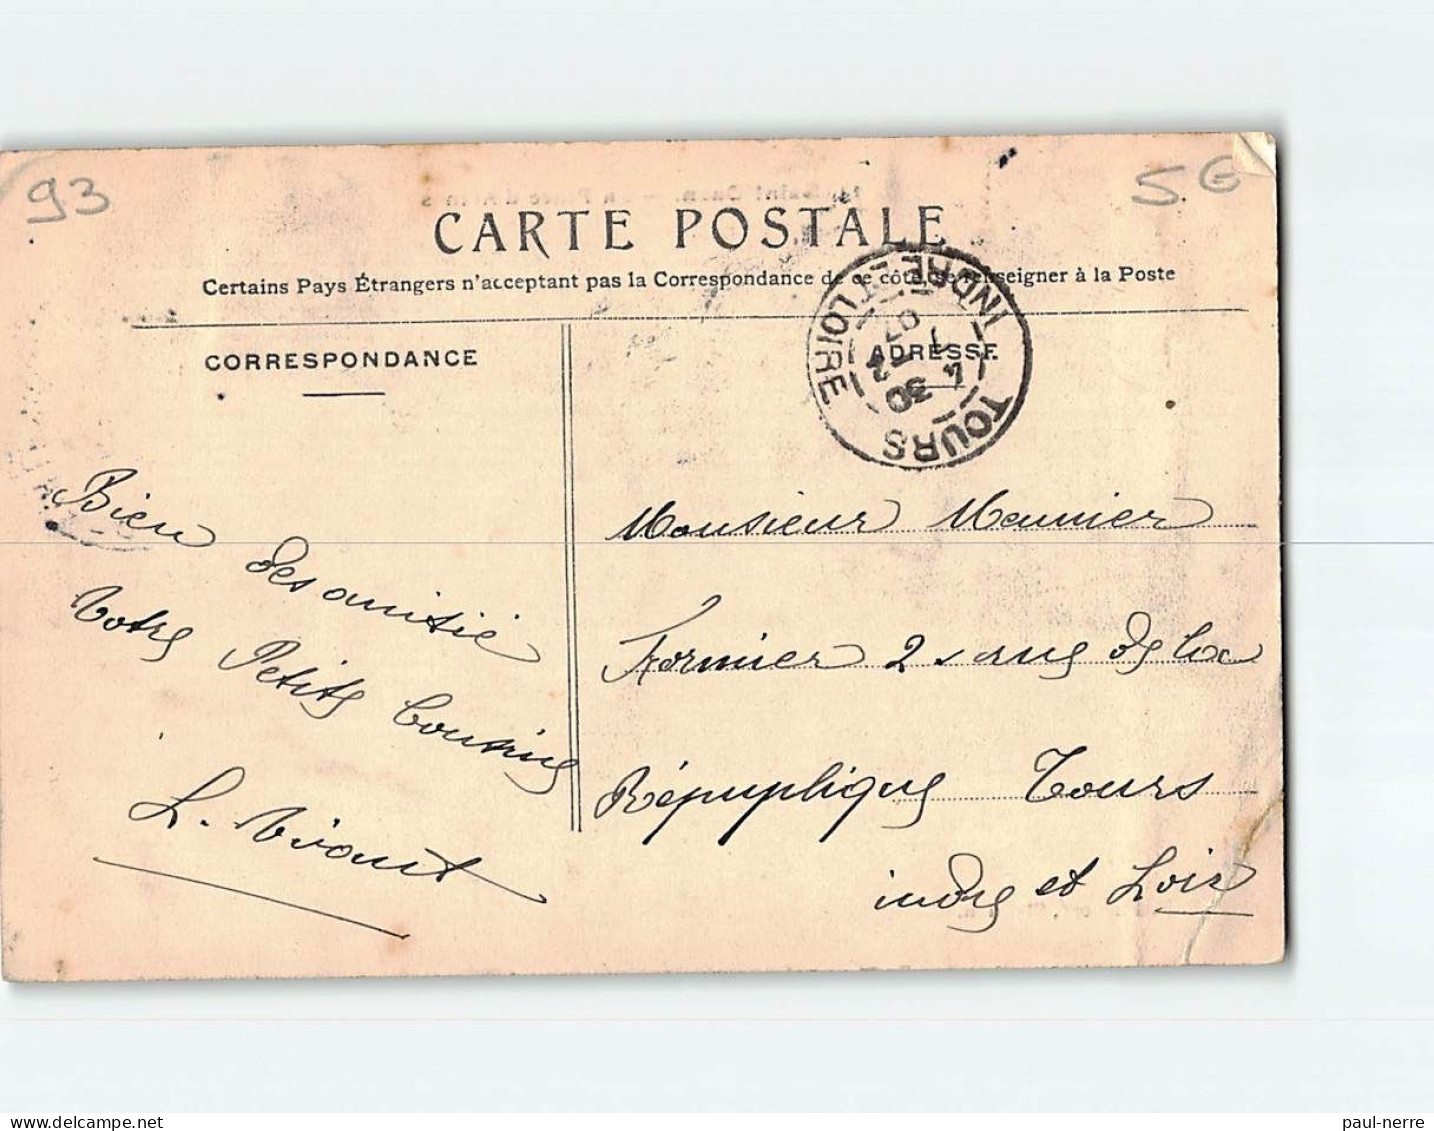 93
5€
CARTE POSTALE
Certains Pays Étrangers n'acceptant pas la Correspondance de ce côté, se renseigner à la Poste
CORRESPONDANCE
ADRESSE
TOURS
INDRE-ET-LOIRE
30
12
07
Bien des amitié
Votre Petits Cousine
L.
Monsieur Meunier
Formier 2 rue de la
Républlique Tours
indre et Loire
paul-nerre